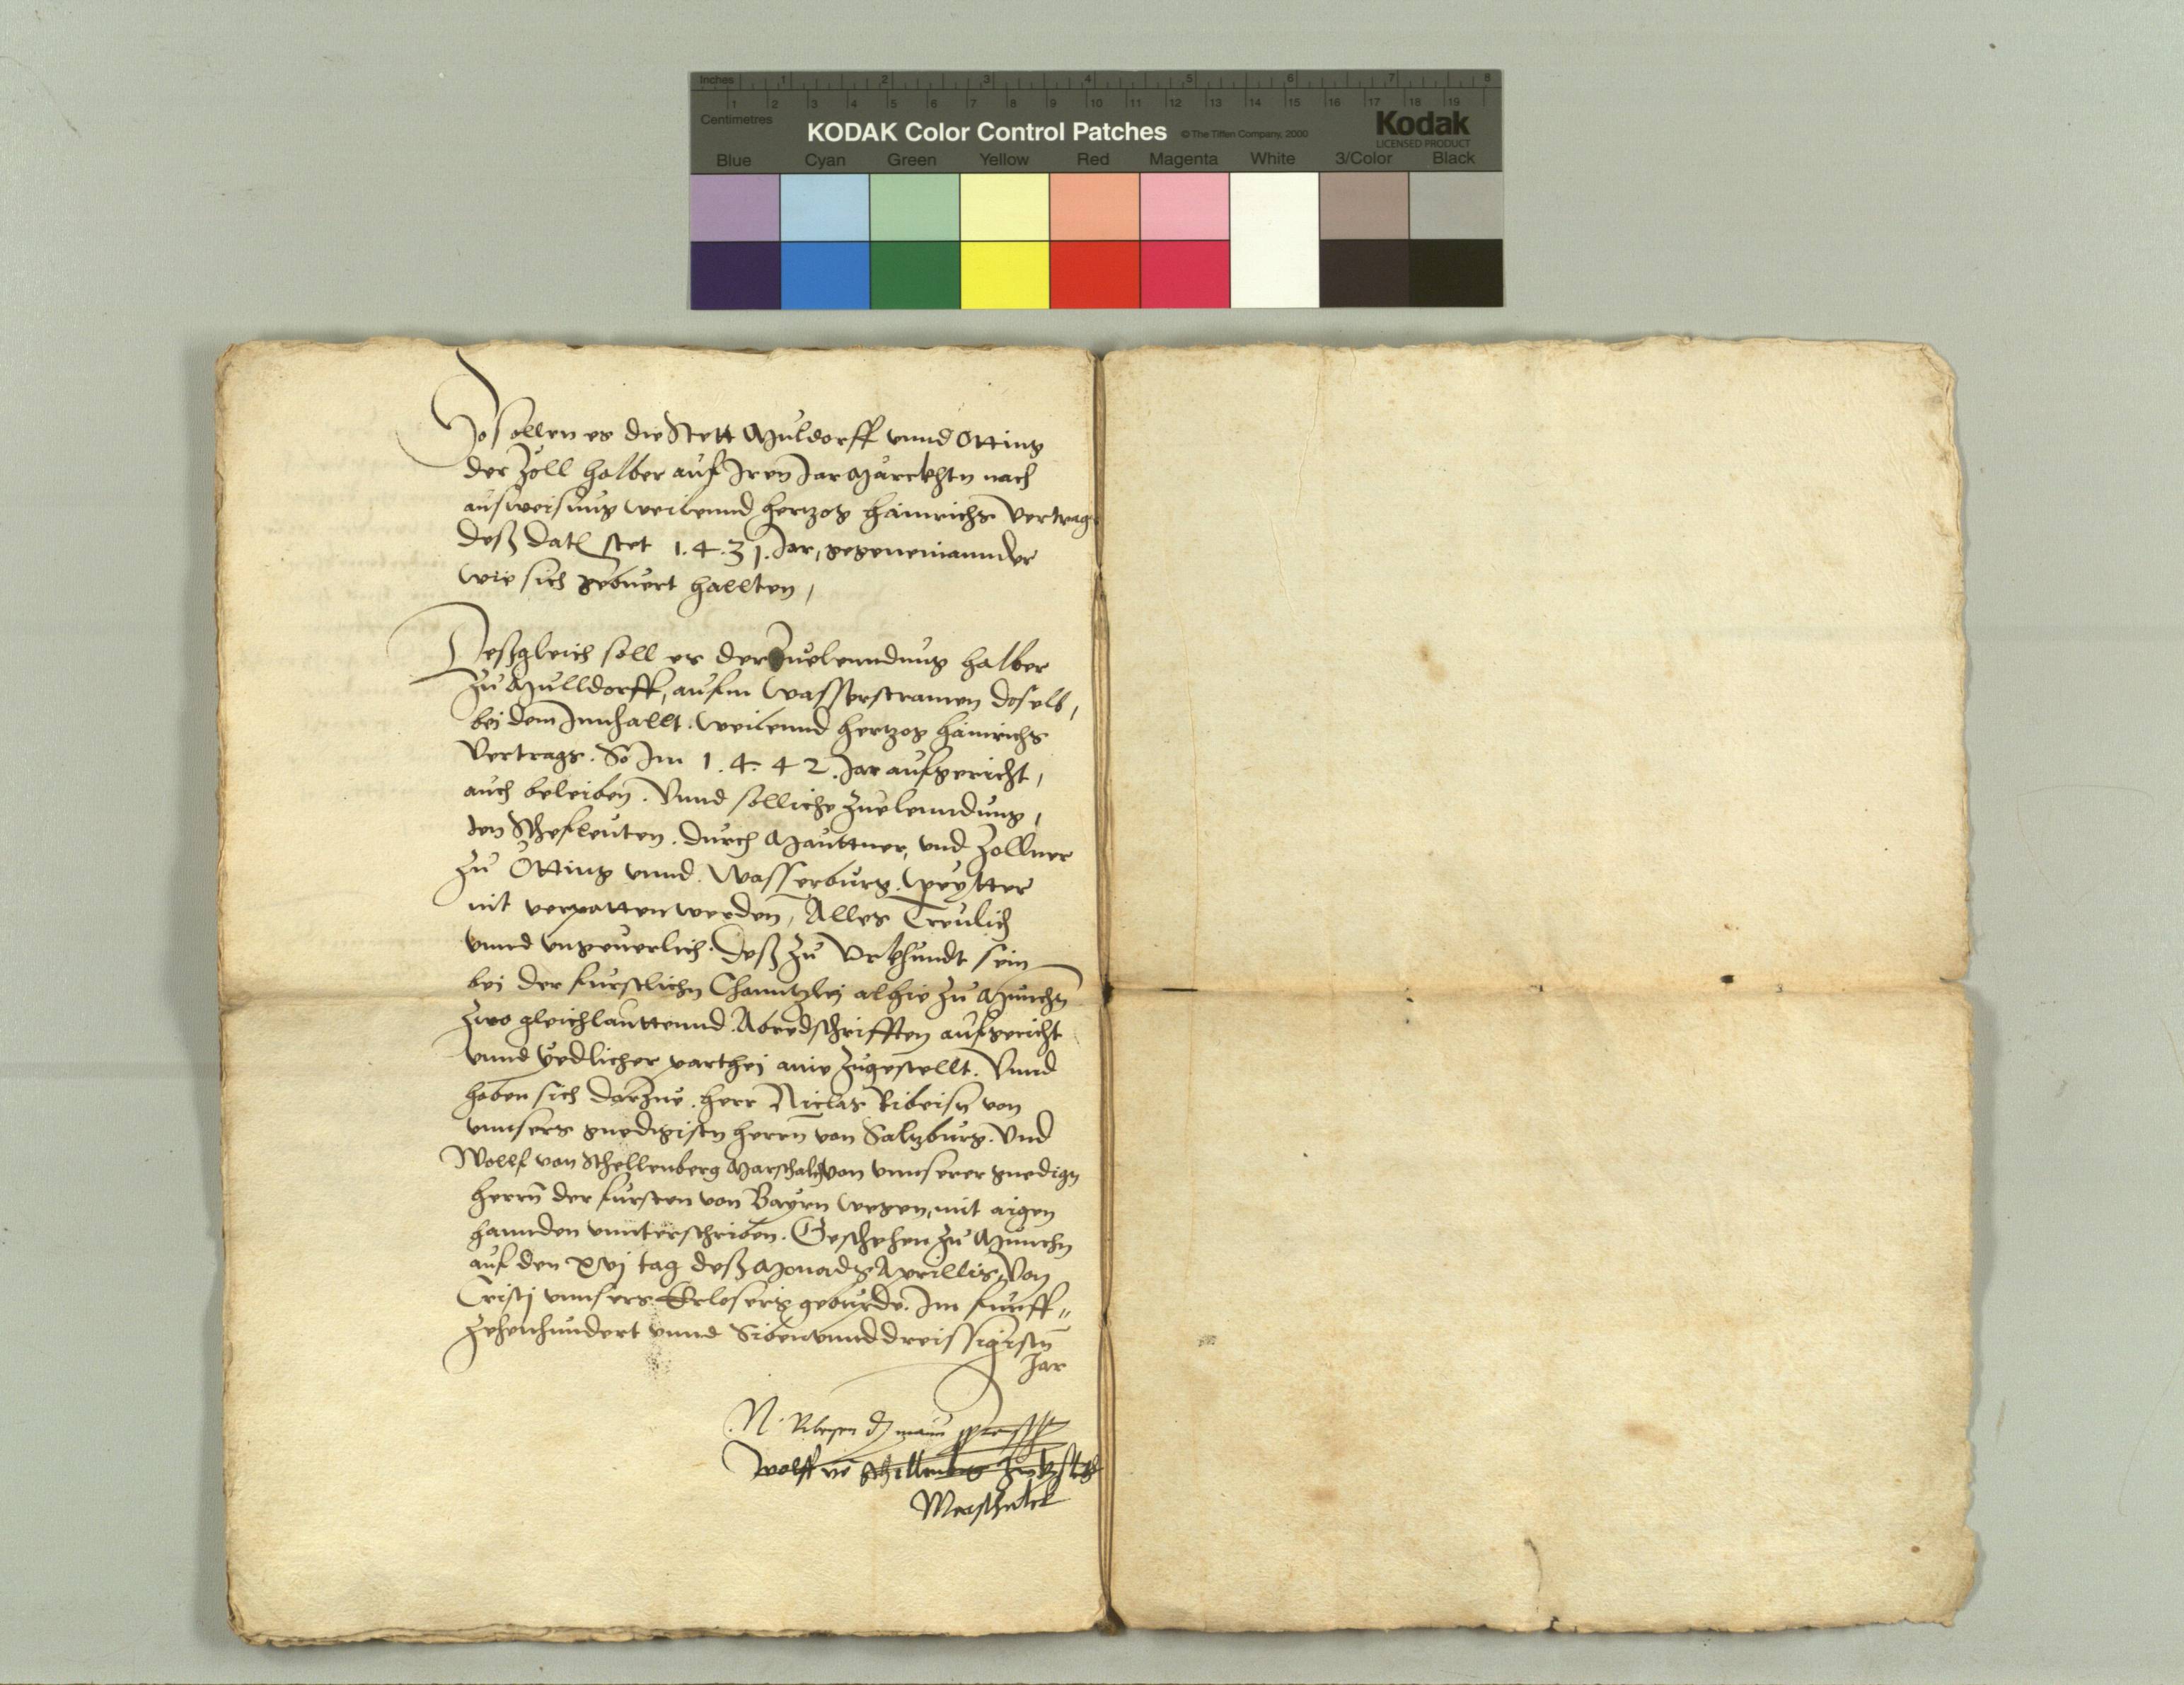 Inches 1 2 3 4 5 6 7 8
1 2 3 4 5 6 7 8 9 10 11 12 13 14 15 16 17 18 19
Centimetres
KODAK Color Control Patches © The Tiffen Company, 2000 Kodak
LICENSED PRODUCT
Blue Cyan Green Yellow Red Magenta White 3/Color Black
So sollen es die Stett Muldorff unnd Otting
der Zoll halber auf Iren Jar Märckhtn nach
ausweisung weilennd hertzog Hainrichs Vertrag
deß dat stet 1.4.31. Jar, gegeneinannder
wie sich gebuert hallten,
Deßgleich soll es der Zuelenndung halber
zu Mulldorff, aufm wasserstramen doselb,
bei dem Innhallt. weilennd hertzog Hainrichs
Vertrags. So Im 1.4.42. Jar aufgericht,
auch beleiben. Unnd solliche Zuelenndung,
den Schefleuten. durch Mauttner, und Zollner
zu Otting unnd. Wasserburg. weytter
nit verpotten werden, Alles Treulich
unnd ungeuerlich. Deß zu Urkhundt sein
bei der furstlichn Channtzlej alhie zu Munchn
zwo gleichlauttennd. Abredschrifften aufgericht
unnd yedlicher parthej aine zugestellt. Unnd
haben sich darzue. herr Niclas Ribeisn von
unnsers gnedigistn herrn von Saltzburg. Und
Wollf von Schellenberg Marschalch von unnserer gnedign
herrn der fursten von Bayrn wegen, mit aigen
hannden unnterschriben. Geschehen zu Munchn
auf den xvj tag deß Monads Aprillis, Von
Cristj unnsers Erlosers geburde. Im funff„
zehenhundert unnd Sibenunnddreissigistn
Jar
N. Ribeysen
Wolff vo Schellenberg
Marschalck